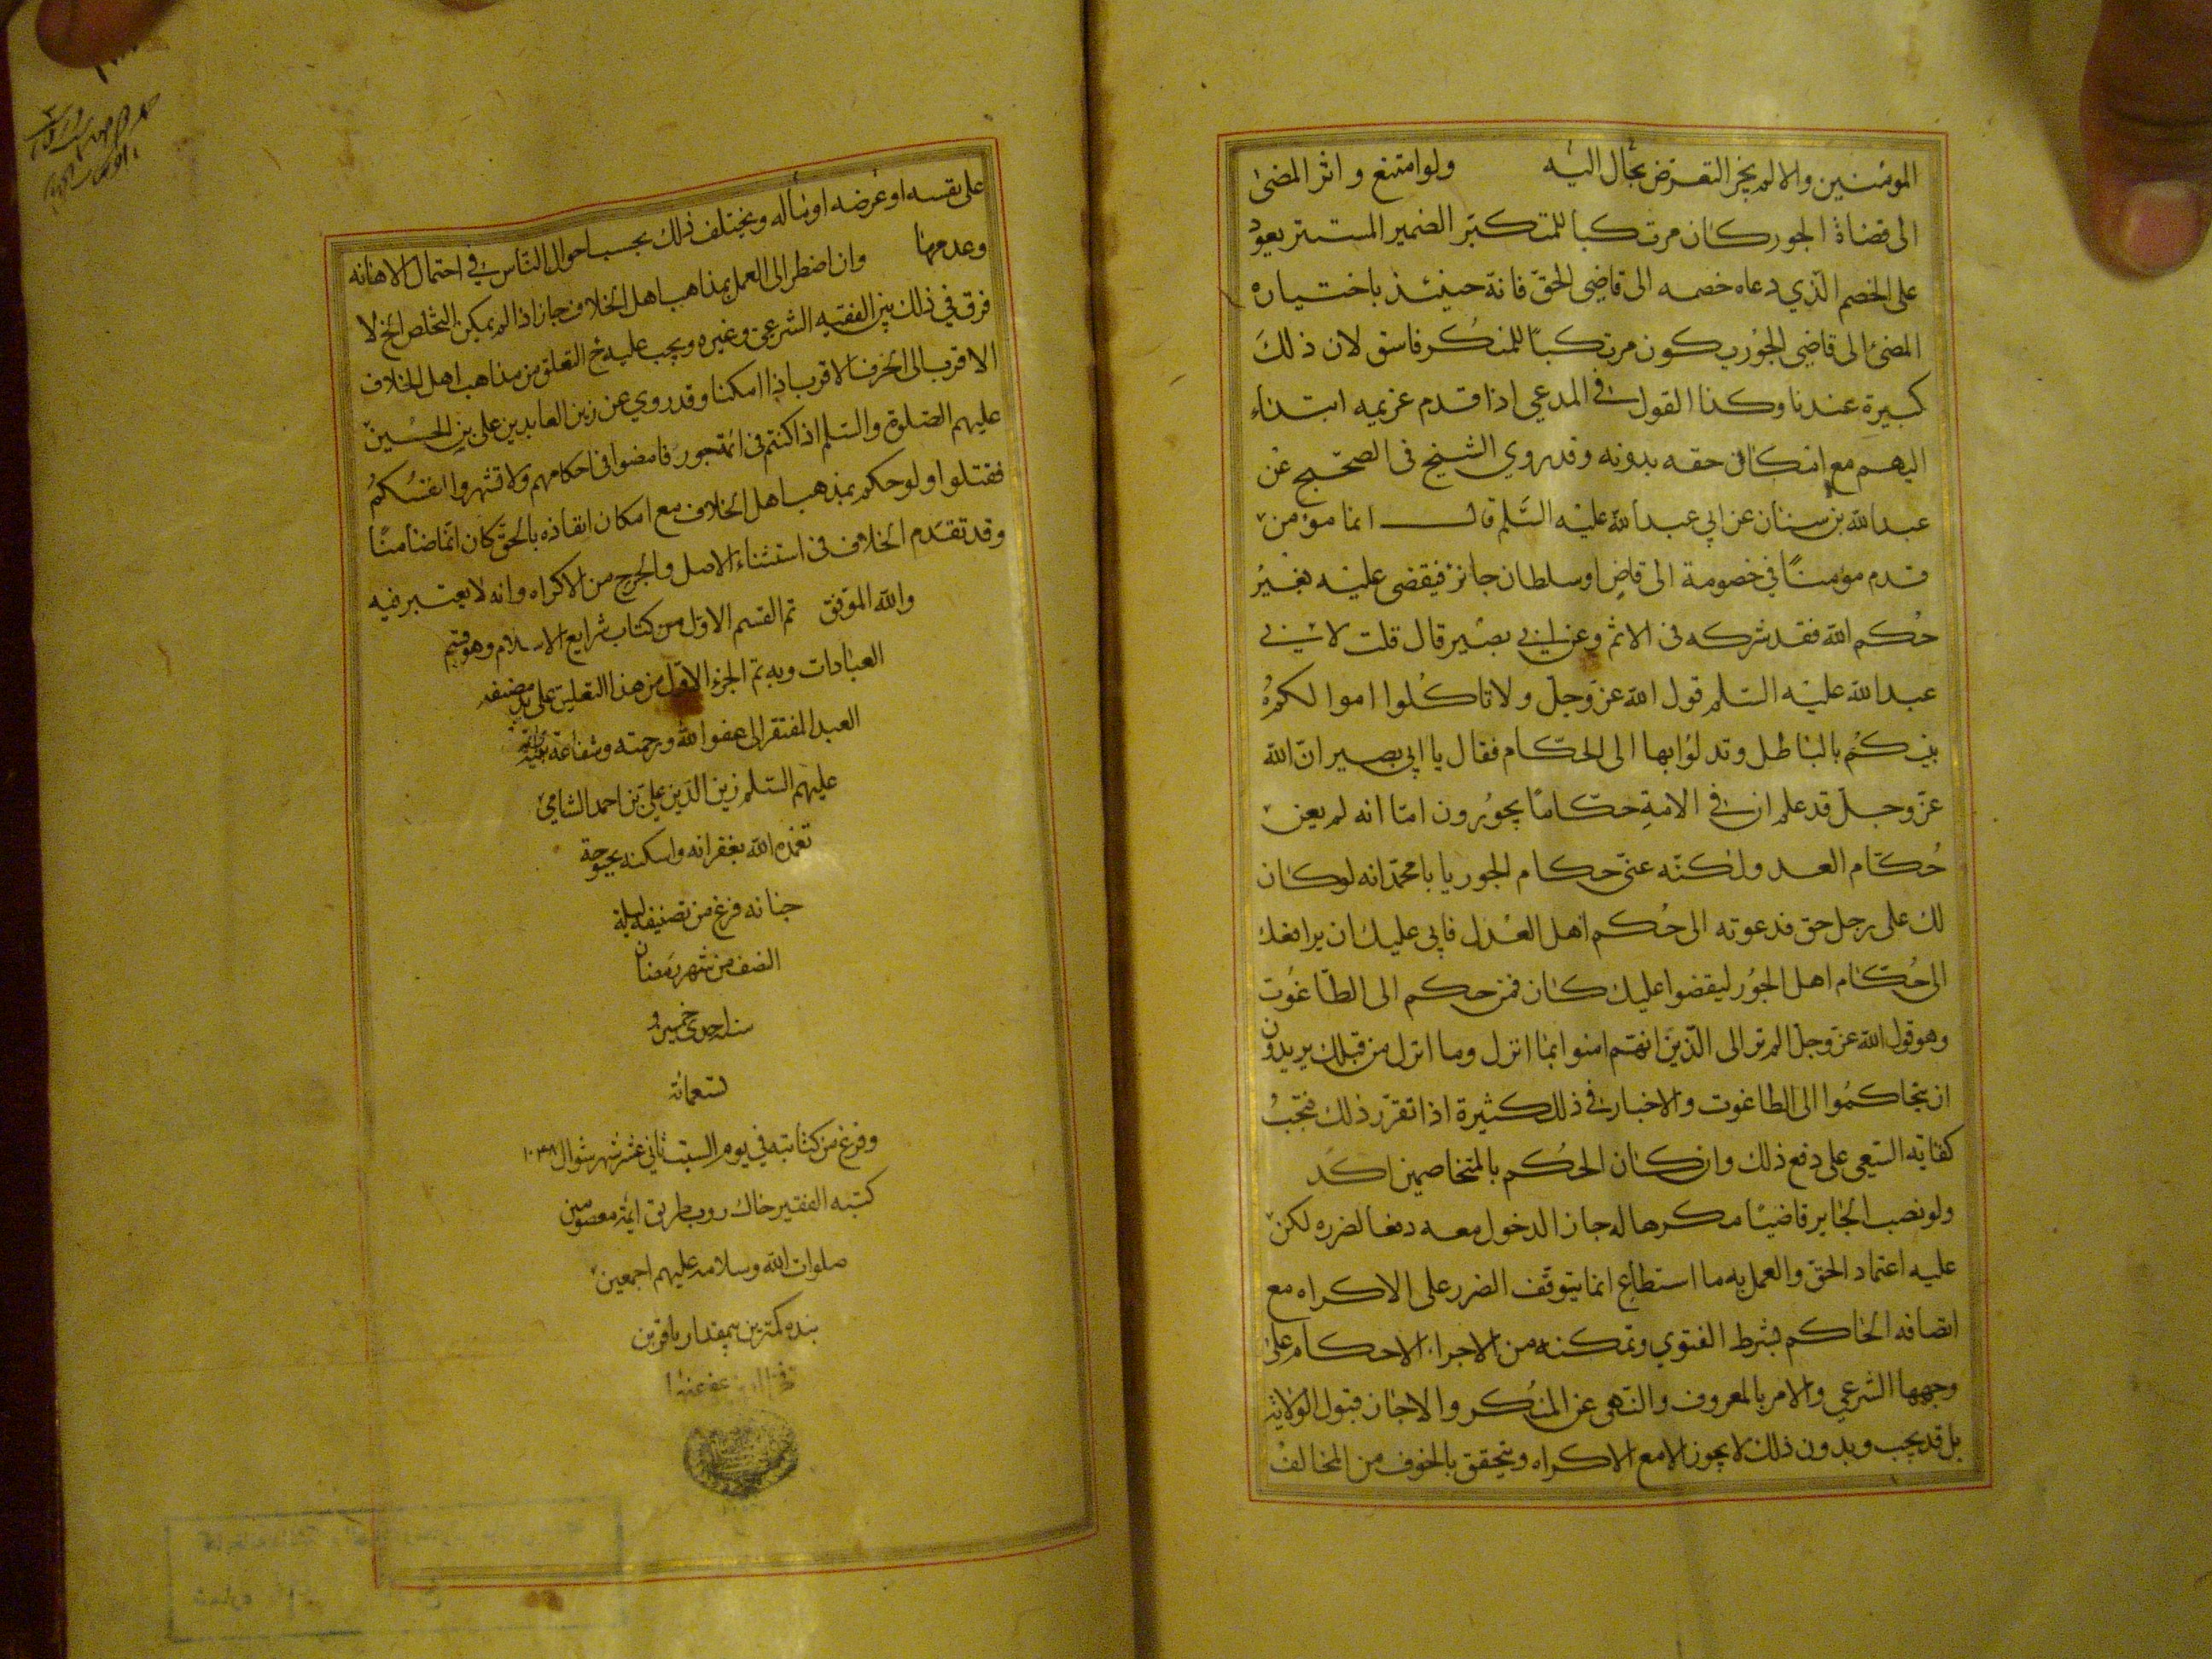 المومنين والا لم يجز التعرض بحال اليه ولو امتنع واثر المضى
الى قضاة الجور كان مرتكبا للمنكر الضمير المستتر يعود
على الخصم الذي دعاه خصمه الى قاضي الحق فانه حينئذ باختياره
المضى الى قاضي الجور يكون مرتكبا للمنكر فاسق لان ذلك
كبيرة عندنا وكذا القول في المدعي اذا قدم غريمه ابتداء
اليهم مع امكان حقه بدونه وقد روي الشيخ في الصحيح عن
عبد الله بن سنان عن ابي عبد الله عليه السلم قال ايما مومن
قدم مومنا في خصومة الى قاض او سلطان جائر فيقضى عليه بغير
حكم الله فقد شركه في الاثم وعن ابي بصير قال قلت لابي
عبد الله عليه السلم قول الله عز وجل ولا تاكلوا اموالكم
بينكم بالباطل وتدلوا بها الى الحكام فقال يا ابي بصير ان الله
عز وجل قد علم ان في الامة حكاما يجورون اما انه لم يعن
حكام العدل ولكنه عنى حكام الجور يا با محمد انه لو كان
لك على رجل حق فدعوته الى حكم اهل العدل فابي عليك ان يرافعك
الى حكام اهل الجور ليقضوا عليك كان فمن حكم الى الطاغوت
وهو قول الله عز وجل الم تر الى الذين انهم امنوا بما انزل وما انزل من قبلك يريدون
ان يتحاكموا الى الطاغوت والاخبار في ذلك كثيرة اذا تقرر ذلك فيجب
كفاية السعي على دفع ذلك وان كان الحكم بالمتخاصمين اكد
ولو نصب الجاير قاضيا مكرها له جاز الدخول معه دفعا لضرره لكن
عليه اعتماد الحق والعمل به ما استطاع انما يتوقف الضرر على الاكراه مع
اتصافه الحاكم بشرط الفتوي وتمكنه من الاجراء الاحكام على
وجهها الشرعي والامر بالمعروف والنهي عن المنكر والا جاز قبول الولاية
بل قد يجب وبدون ذلك لا يجوز الا مع الاكراه ويتحقق بالخوف من المخالف
على نفسه او عرضه او ماله ويختلف ذلك بحسب احوال الناس في احتمال الاهانه
وعدمها وان اضطر الى العمل بمذاهب اهل الخلاف جاز اذا لم يمكن التخلص الخ لا
فرق في ذلك بين الفقيه الشرعي وغيره ويجب عليه ح التعلق من مذاهب اهل الخلاف
الاقرب الى الحق فالاقرب اذا امكنا وقد روي عن زين العابدين علي بن الحسين
عليهم الصلوة والسلم اذا كنتم في ائمة جور فامضوا في احكامهم ولا تشهروا انفسكم
فتقتلوا ولو حكم بمذهب اهل الخلاف مع امكان انفاذه بالحق كان اثما ضامنا
وقد تقدم الخلاف في استثناء الاصل والجرح من الاكراه وانه لا يعتبر فيه
والله الموفق تم القسم الاول من كتاب شرايع الاسلام وهو قسم
العبادات وبه تم الجزء الاول من هذا التعليق على يد مصنفه
العبد المفتقر الى عفو الله ورحمته وشفاعة نبيه
عليهم السلم زين الدين علي بن احمد الشامي
تغمده الله بغفرانه واسكنه بحبوحة
جنانه فرغ من تصنيفه ليلة
النصف من شهر رمضان
سنة احدى خمسين و
تسعمائة
وفرغ من كتابته في يوم السبت ثاني عشر شهر شوال ١٠٤٨
كتبه الفقير خاك روب طريق ايمة معصومين
صلوات الله وسلامه عليهم اجمعين
بنده كمترين بيمقدار باقر بن
عفى عنه